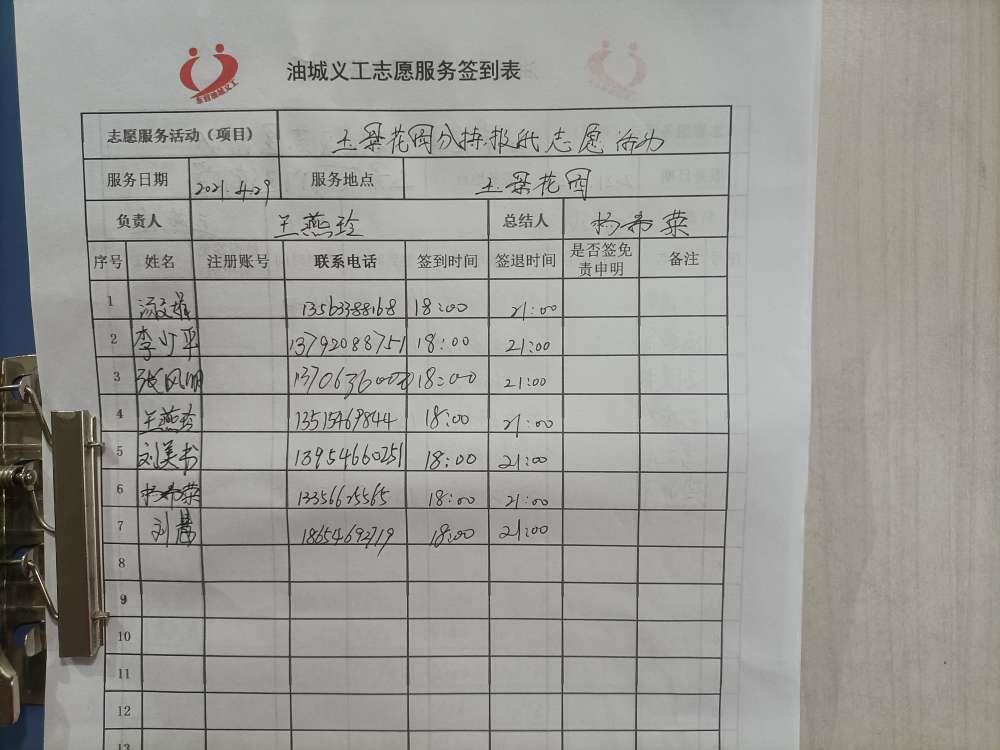 油城义工志愿服务签到表
志愿服务活动（项目） 玉景花园分拣报纸志愿活动
服务日期 2021.4.29 服务地点 玉景花园
负责人 王燕玲 总结人 杨希荣
序号 姓名 注册账号 联系电话 签到时间 签退时间 是否签免责申明 备注
1 13563388168 18:00 21:00
2 李少平 13792088751 18:00 21:00
3 张凤明 18:00 21:00
4 王燕玲 13515469844 18:00 21:00
5 刘美书 18954660251 18:00 21:00
6 杨希荣 13356625565 18:00 21:00
7 刘 18654692719 18:00 21:00
8
9
10
11
12
13